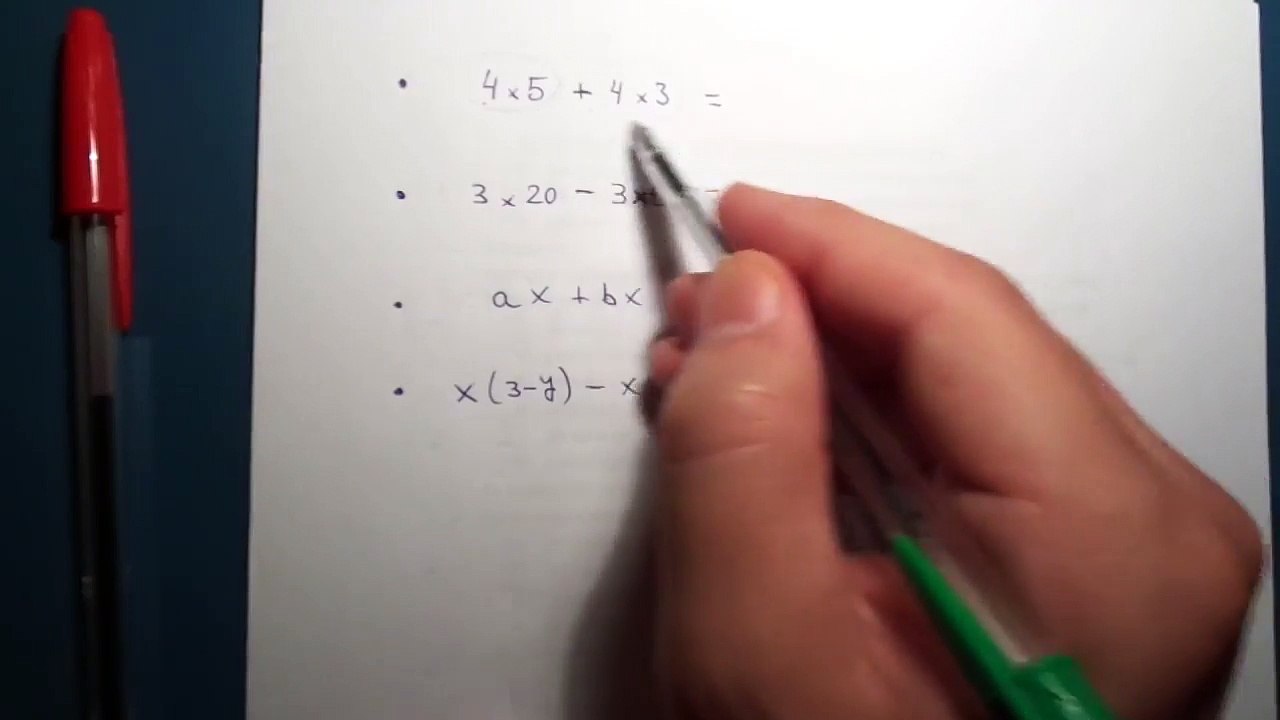 • 4 × 5 + 4 × 3 =
• 3 × 20 - 3 ×
• ax + bx
• x (3-y) - x